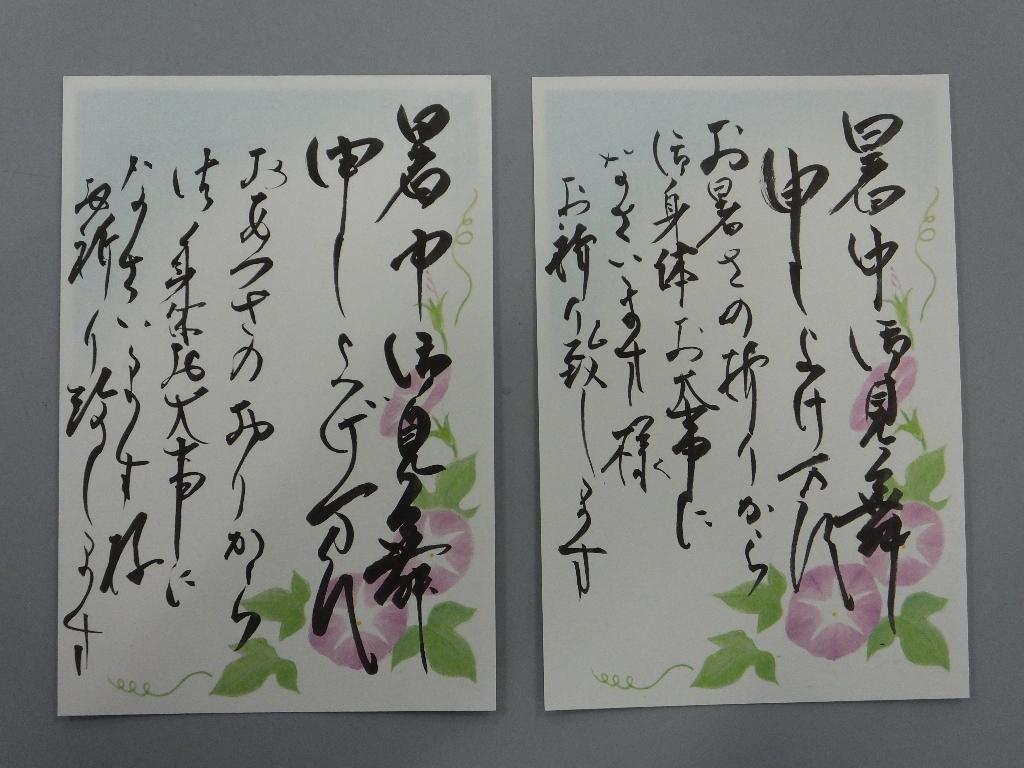 暑中御見舞
申し上げ万す
お暑さの折りから
御身体お大事に
なさいます様
お祈り致します
暑中御見舞
申し上げ万す
おあつさのおりから
御身体お大事に
なさいます様
お祈り致します